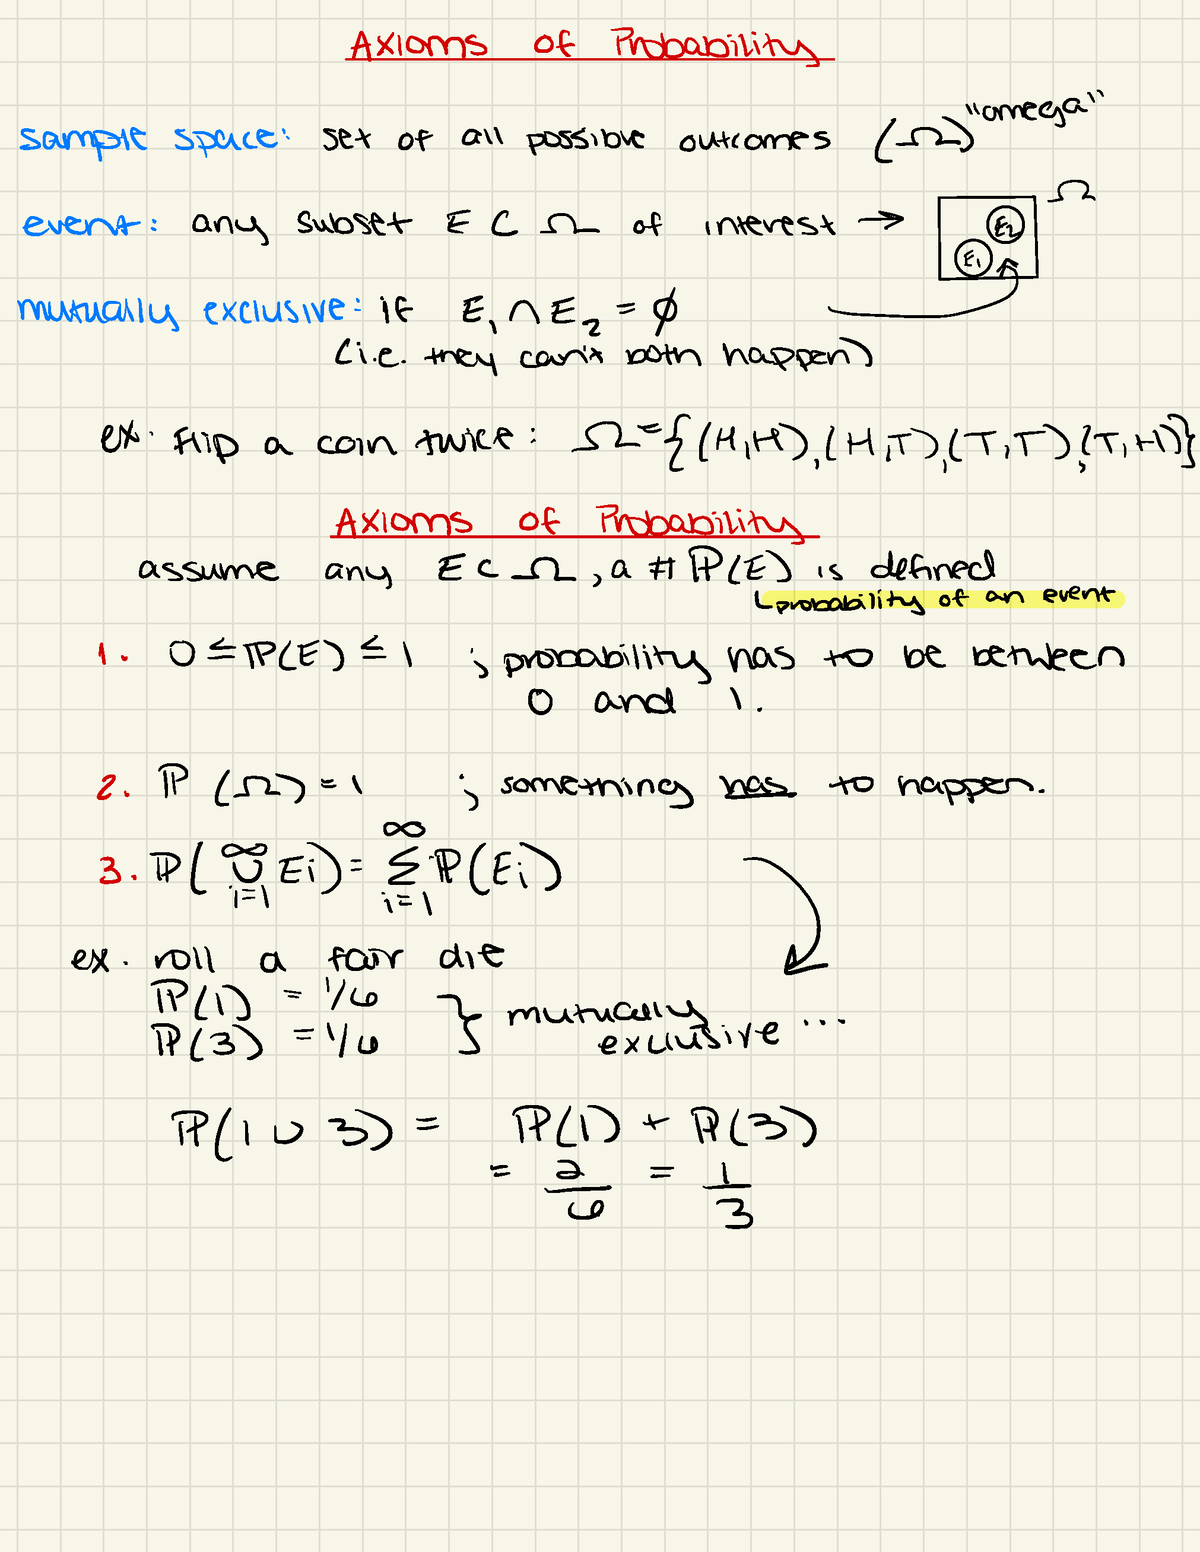 Axioms of Probability
sample space: set of all possible outcomes (Ω) "omega"
event: any subset E ⊂ Ω of interest → Ω
E₂
E₁
mutually exclusive: if E₁ ∩ E₂ = ∅
(i.e. they can't both happen)
ex. Flip a coin twice: Ω = {(H,H),(H,T),(T,T),(T,H)}
Axioms of Probability
assume any E ⊂ Ω, a # ℙ(E) is defined
↳probability of an event
1. 0 ≤ ℙ(E) ≤ 1 ; probability has to be between
0 and 1.
2. ℙ(Ω) = 1 ; something has to happen.
3. ℙ(∞∪i=1 Ei) = ∞Σi=1 ℙ(Ei)
ex. roll a fair die
ℙ(1) = 1/6
ℙ(3) = 1/6 } mutually
exclusive ...
ℙ(1 ∪ 3) = ℙ(1) + ℙ(3)
= 2/6 = 1/3